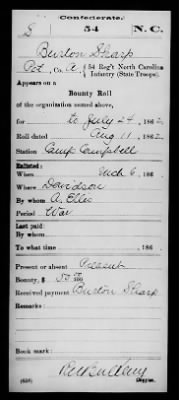 Confederate.
S 54 N. C.
Burton Sharp
Pvt, Co. A, 54 Reg't North Carolina
Infantry (State Troops).
Appears on a
Bounty Roll
of the organization named above,
for to July 24, 1862
Roll dated Aug 11, 1862
Station Camp Campbell
Enlisted:
When Mch 6, 186 .
Where Davidson
By whom A. Ellis
Period War
Last paid:
By whom
To what time , 186 .
Present or absent Present
Bounty, $ 50 00/100
Received payment Burton Sharp
Remarks:
Book mark:
Copyist.